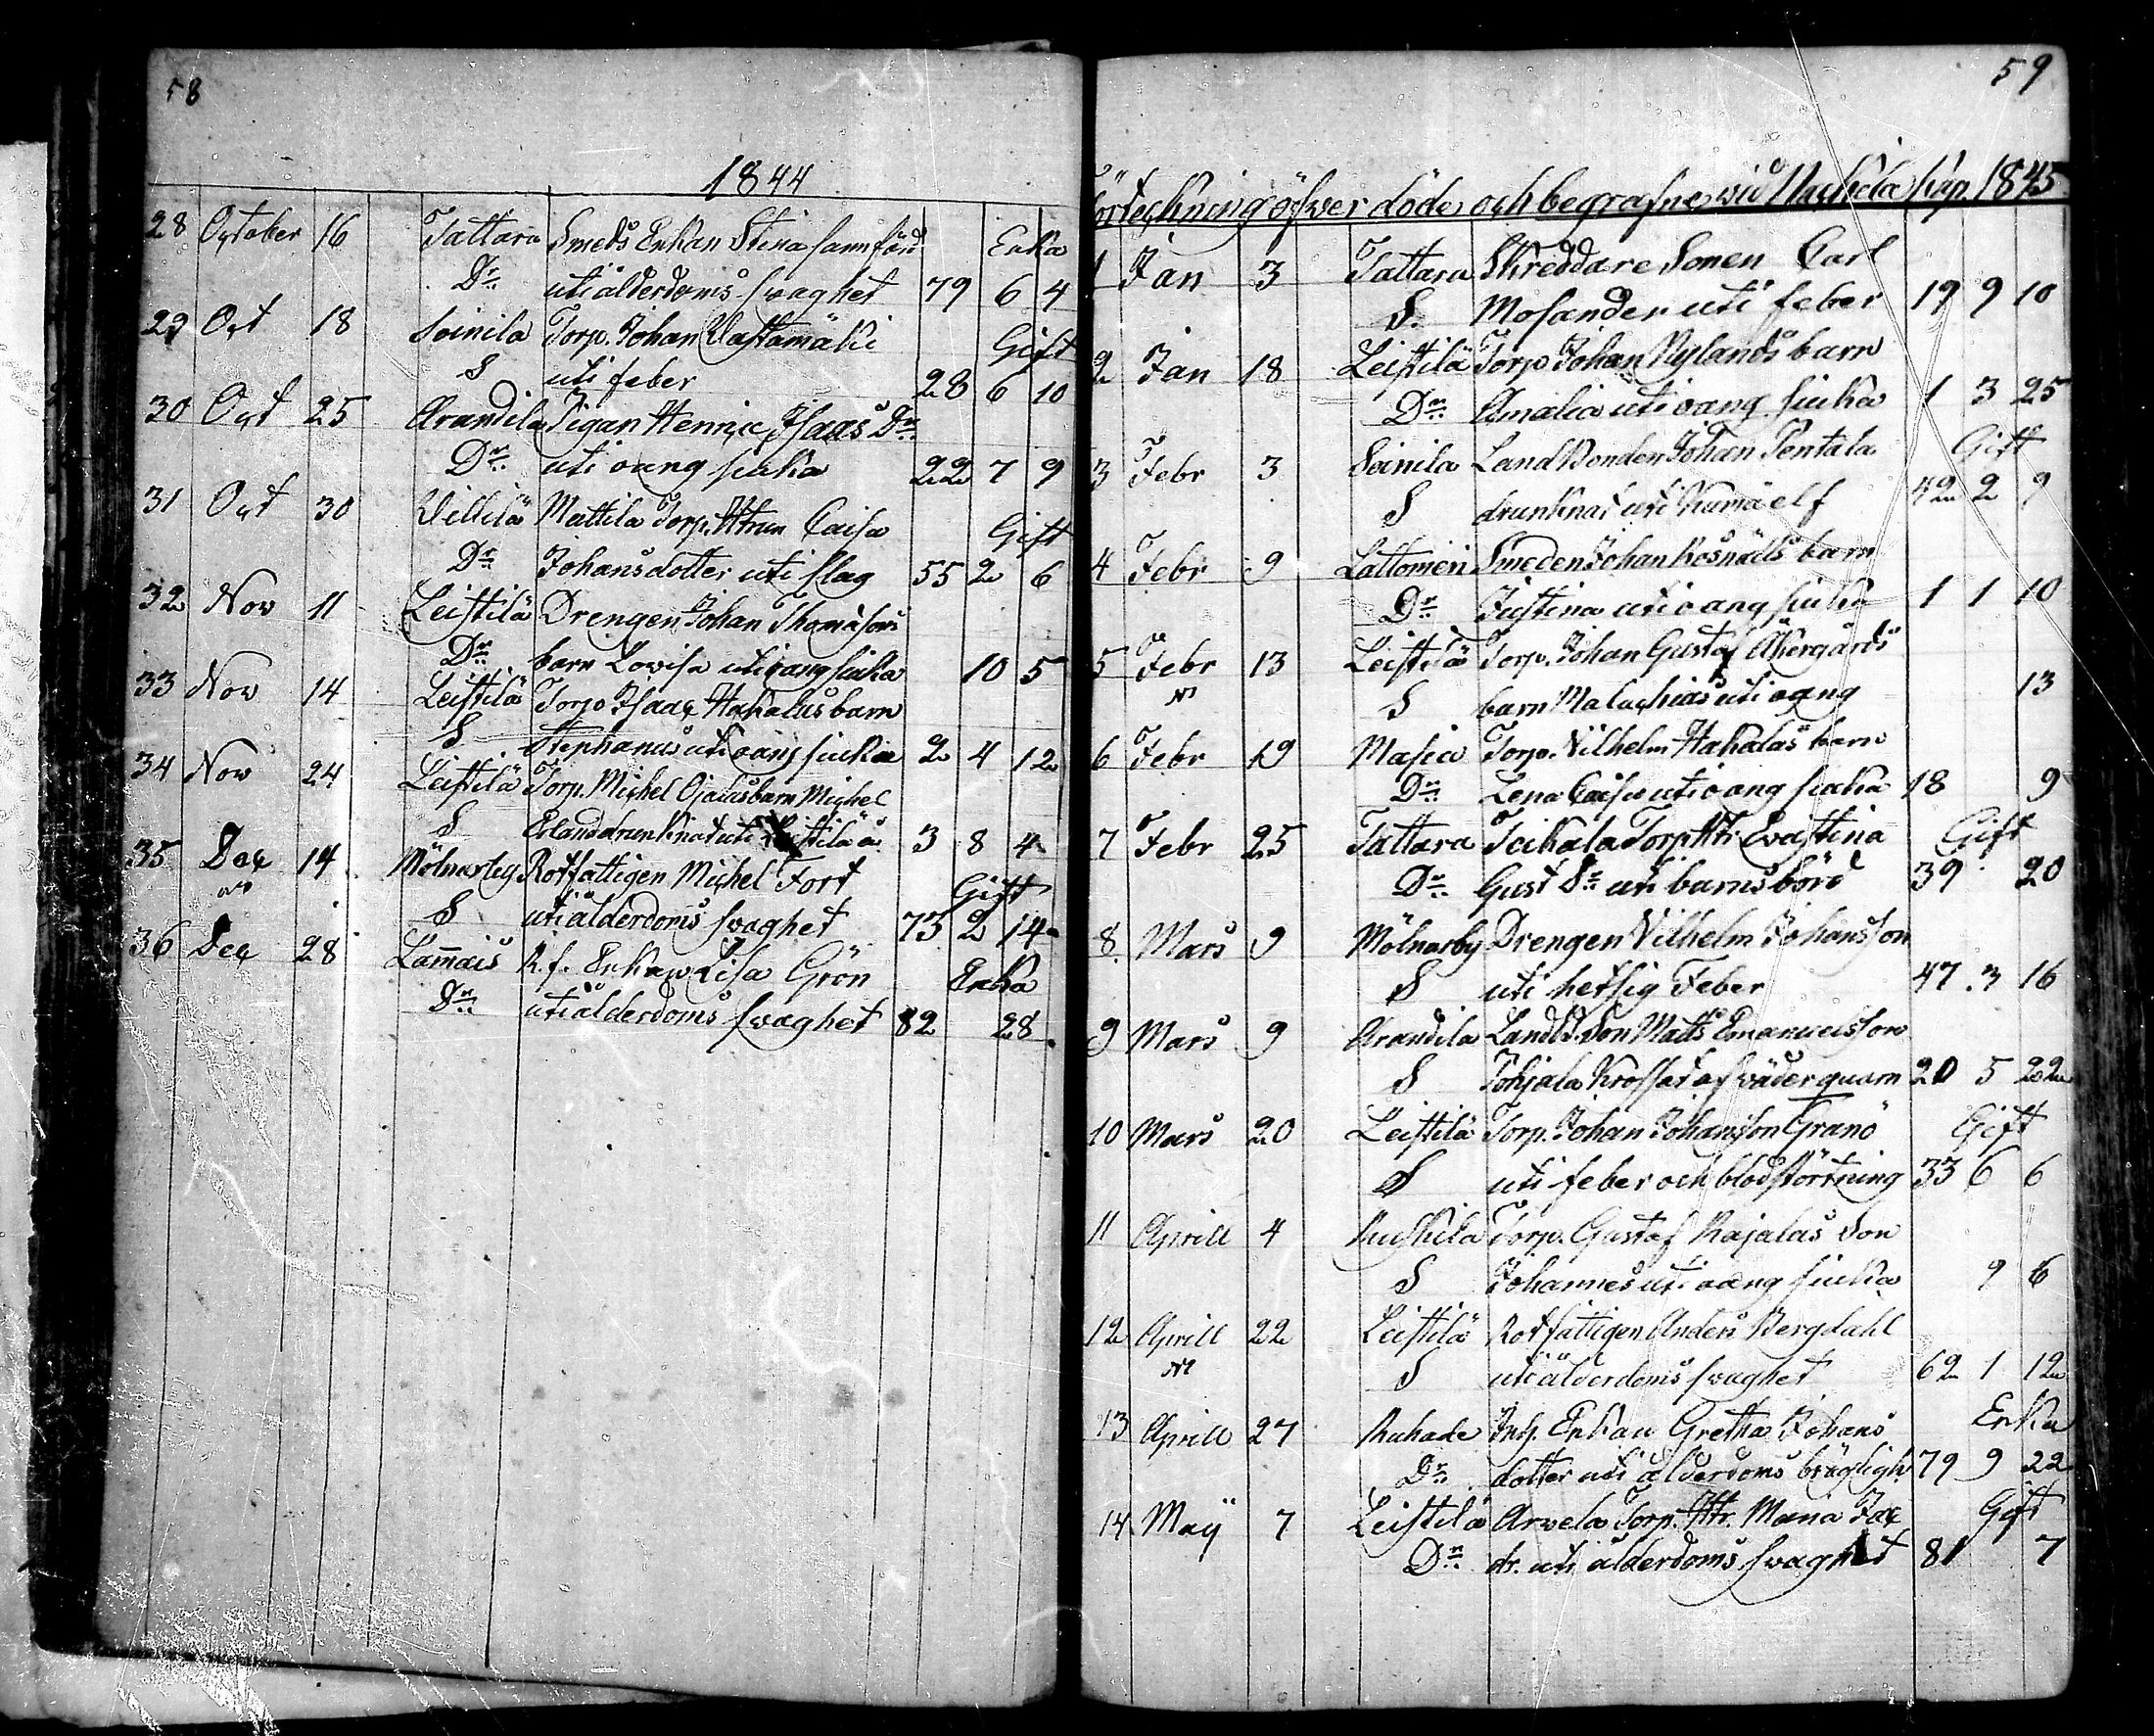 58
1844
28 October 16 Tattara Smeds Enkan Stina sannfärd Enka
Dr. uti ålderdoms swaghet 79 6 4
29 Oct 18 Soinila Torp. Johan Wastamäki Gift
S uti feber 28 6 10
30 Oct 25 Arandila Pigan Henrica Isaacs Dr.
Dr. uti oang siuka 22 7 9
31 Oct 30 Villilä Mattila Torp. Htrun Caisa Gift
Dr. Johansdotter uti slag 55 2 6
32 Nov 11 Leistilä Drengen Johan Thomasons
Dr. barn Lovisa uti oang siuka 10 5
33 Nov 14 Leistilä Torp Isaac Hakalas barn
S Stephanus uti oang siuka 2 4 12
34 Nov 24 Leistilä Torp. Michel Ojalas barn Michel
S Erland drunknat uti Leistilä å 3 8 4
35 Dec 14 Mölnarby Rotfattigen Michel Fort Gift
S uti ålderdoms swaghet 73 2 14
36 Dec 28 Lammais R.f. Enkan Lisa Grön Enka
Dr. uti ålderdoms swaghet 82 28
59
Förteckning öfwer döde och begrafne wid Nackila Kap. 1845
1 Jan 3 Tattara Skreddare Sonen Carl
S. Mosander uti feber 19 9 10
2 Jan 18 Leistilä Torp Johan Nylands barn
Dr. Amalia uti oang siuka 1 3 25
3 Febr 3 Soinila LandBonden Johan Pentala Gift
S drunknat uti Kumå elf 42 2 9
4 Febr 9 Lattomeri Smeden Johan Rosnälls barn
Dr. Justina uti oang siuka 1 1 10
5 Febr 13 Leistilä Torp. Johan Gustaf Åkergårds
S barn Malachias uti oang 13
6 Febr 19 Masia Torp. Vilhelm Hakalas barn
Dr. Lena Caisa uti oang siuka 18 9
7 Febr 25 Tattara Teikala Torp Htr. Evastina Gift
Dr. Gust Dr. uti barnsbörd 39 20
8 Mars 9 Mölnarby Drengen Vilhelm Johansson
S uti hetsig Feber 47 3 16
9 Mars 9 Arandila Landb. Son Matts Emanuelsson
S Pohjala Krossad af väderquarn 20 5 22
10 Mars 20 Leistilä Torp. Johan Johansson Granö Gift
S uti feber och blodstörtning 33 6 6
11 Aprill 4 Kuskila Torp. Gustaf Rajalas Son
S Johannes uti oang siuka 9 6
12 Aprill 22 Leistilä Rotfattigen Anders Bergdahl
S uti ålderdoms swaghet 62 1 12
13 Aprill 27 Ruhade Inh. Enkan Gretha Johans Enka
Dr. dotter uti ålderdoms bräcligh 79 9 22
14 Maÿ 7 Leistilä Arvela Torp. Htr. Maria Jac Gift
Dr. dr. uti ålderdoms swaghet 81 7